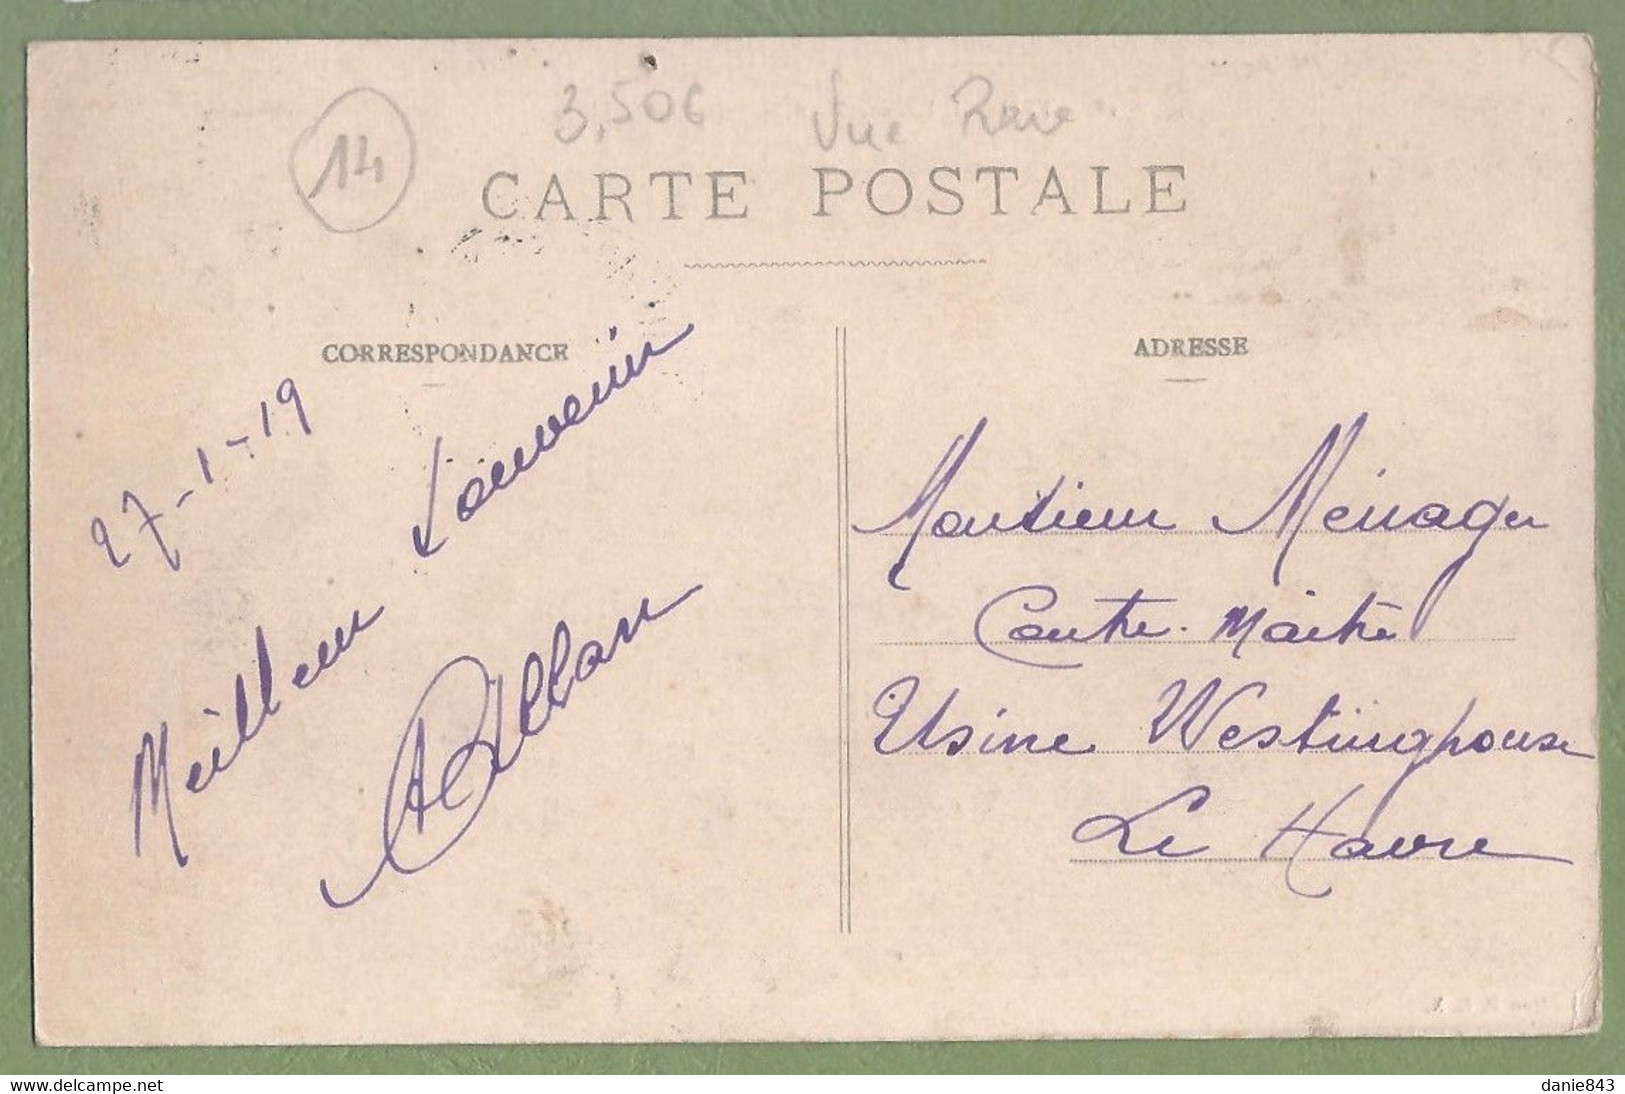 14
3,50€ Vue Rare
CARTE POSTALE
CORRESPONDANCE
27-1-19
Meilleur Souvenir
ADRESSE
Monsieur Ménager
Contre-Maître
Usine Westinghouse
Le Havre
www.delcampe.net
danie843